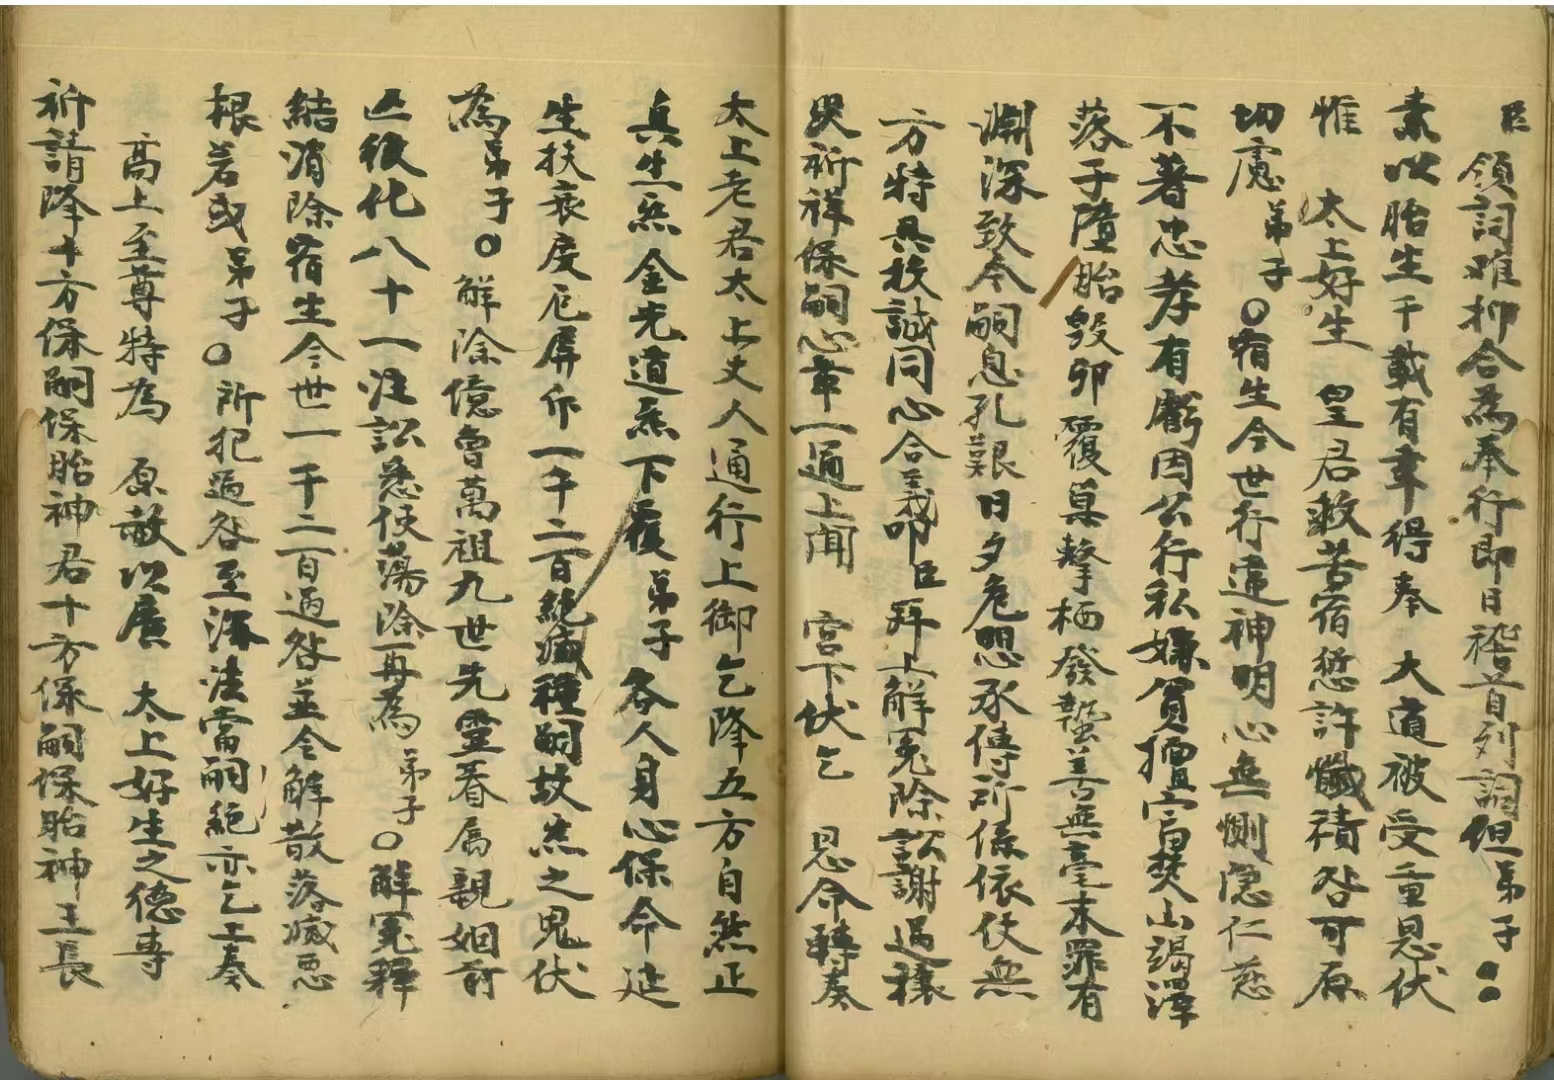 臣領詞难抑合為奉行即日稽首列詞但弟子〻
素以胎生千載有幸得奉 大道被受重恩伏
惟 太上好生 皇君救苦宿愆許懺積咎可原
切慮弟子〇宿生今世行違神明心無惻隐仁慈
不著忠孝有虧因公行私嫌貧擅富焚山竭澤
落子墮胎毀卵覆巢擊栖發蟄善無毫末罪有
淵深致令嗣息孔艱日夕危思承傳所係依伏無
方特具投誠同心合義叩臣拜上解冤除訟謝過禳
災祈祥保嗣心章一通上聞 宮下伏乞 恩命轉奏
太上老君太上丈人通行上御乞降五方自然正
真生炁金光道炁下覆弟子各人身心保命延
生扶衰度厄屏斥一千二百絕滅種嗣故炁之鬼伏
為弟子〇解除億曾萬祖九世先靈眷属親姻前
亡後化八十一注訟悉使蕩除再為弟子〇解冤釋
結消除宿生今世一千二百過咎並令解散落滅惡
根若或弟子〇所犯過咎至深法當嗣絕亦乞上奏
高上至尊特為 原赦以廣 太上好生之德専
祈請降十方保嗣保胎神君十方保嗣保胎神王長